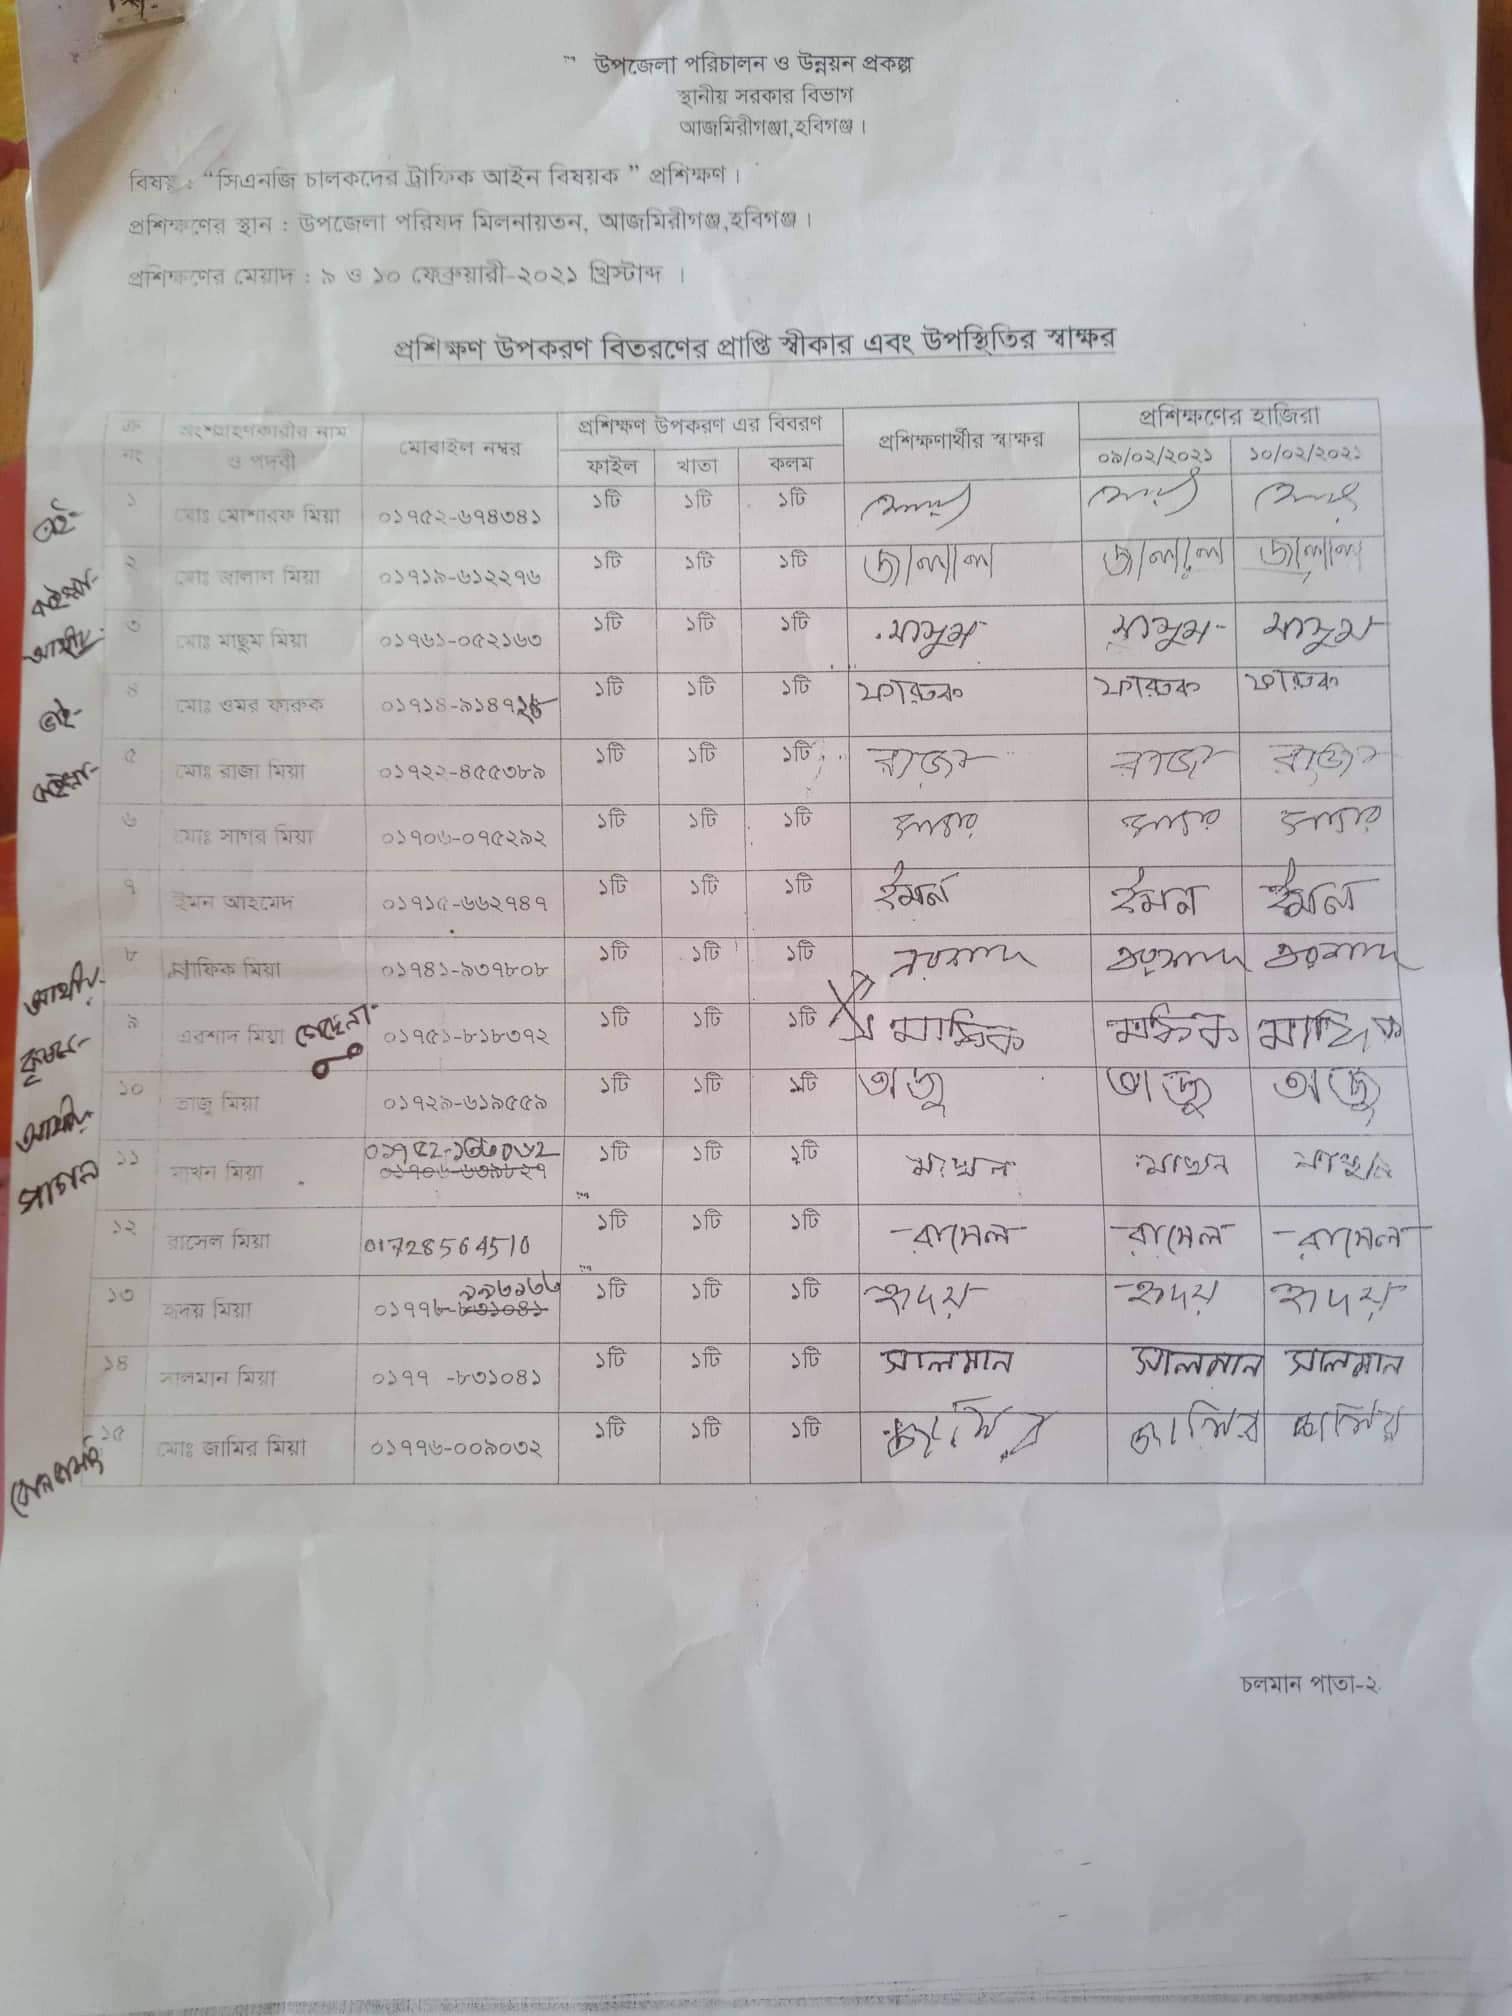 উপজেলা পরিচালন ও উন্নয়ন প্রকল্প
স্থানীয় সরকার বিভাগ
আজমিরীগঞ্জ,হবিগঞ্জ।
বিষয় : “সিএনজি চালকদের ট্রাফিক আইন বিষয়ক ” প্রশিক্ষণ।
প্রশিক্ষণের স্থান : উপজেলা পরিষদ মিলনায়তন, আজমিরীগঞ্জ,হবিগঞ্জ।
প্রশিক্ষণের মেয়াদ : ৯ ও ১০ ফেব্রুয়ারী-২০২১ খ্রিস্টাব্দ ।
প্রশিক্ষণ উপকরণ বিতরণের প্রাপ্তি স্বীকার এবং উপস্থিতির স্বাক্ষর
ক্র নং অংশগ্রহণকারীর নাম ও পদবী মোবাইল নম্বর প্রশিক্ষণ উপকরণ এর বিবরণ প্রশিক্ষণার্থীর স্বাক্ষর প্রশিক্ষণের হাজিরা
ফাইল খাতা কলম ০৯/০২/২০২১ ১০/০২/২০২১
১ মোঃ মোশারফ মিয়া ০১৭৫২-৬৭৪৩৪১ ১টি ১টি ১টি
২ মোঃ জালাল মিয়া ০১৭১৯-৬১২২৭৬ ১টি ১টি ১টি জালাল জালাল জালাল
৩ মোঃ মাছুম মিয়া ০১৭৬১-০৫২১৬৩ ১টি ১টি ১টি মাসুম মাসুম মাসুম
৪ মোঃ ওমর ফারুক ১টি ১টি ১টি ফারুক ফারুক ফারুক
৫ মোঃ রাজা মিয়া ০১৭২২-৪৫৫৩৮৯ ১টি ১টি ১টি রাজা রাজা রাজা
৬ মোঃ সাগর মিয়া ০১৭০৬-০৭৫২৯২ ১টি ১টি ১টি সাগর সাগর সাগর
৭ ইমন আহমেদ ০১৭১৫-৬৬২৭৪৭ ১টি ১টি ১টি ইমন ইমন ইমন
৮ মাফিক মিয়া ০১৭৪১-৯৩৭৮০৮ ১টি ১টি ১টি
৯ এরশাদ মিয়া ০১৭৫১-৮১৮৩৭২ ১টি ১টি ১টি মাফিক মাফিক মাফিক
১০ তাজু মিয়া ০১৭২৯-৬১৯৫৫৯ ১টি ১টি ১টি তাজু তাজু তাজু
১১ মাখন মিয়া ১টি ১টি ১টি মাখন মাখন মাখন
১২ রাসেল মিয়া 01728564510 ১টি ১টি ১টি রাসেল রাসেল রাসেল
১৩ হৃদয় মিয়া ১টি ১টি ১টি হৃদয় হৃদয় হৃদয়
১৪ সালমান মিয়া ০১৭৭ -৮৩১০৪১ ১টি ১টি ১টি সালমান সালমান সালমান
১৫ মোঃ জামির মিয়া ০১৭৭৬-০০৯০৩২ ১টি ১টি ১টি জামির জামির জামির
চলমান পাতা-২